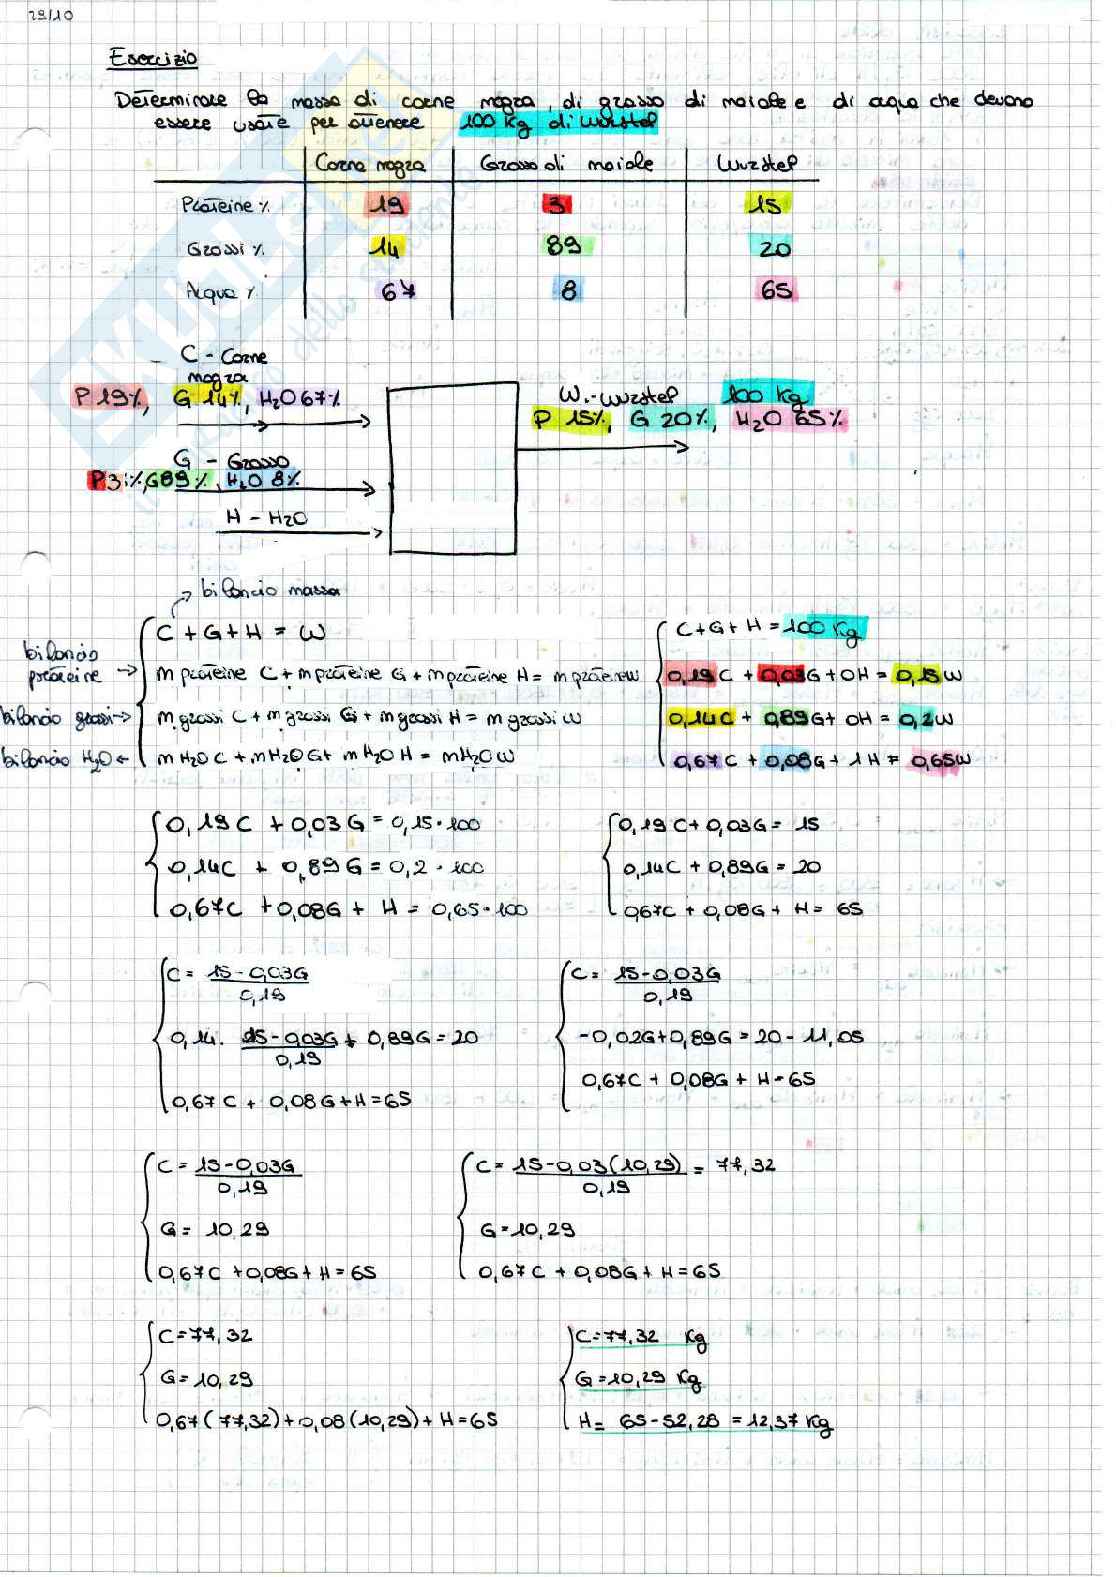 29/10
Esercizio
Determinare la massa di carne magra, di grasso di maiale e di acqua che devono
essere usate per ottenere 100 Kg di wurstel
Carne magra Grasso di maiale Wurstel
Proteine % 19 3 15
Grassi % 14 89 20
Acqua % 67 8 65
C - Carne
magra
P 19%, G 14%, H2O 67%
W - wurstel 100 Kg
P 15%, G 20%, H2O 65%
G - Grasso
P3%, G89%, H2O 8%
H - H2O
bilancio massa
C + G + H = W
bilancio
proteine → m proteine C + m proteine G + m proteine H = m proteine W
bilancio grassi → m grassi C + m grassi G + m grassi H = m grassi W
bilancio H2O ← m H2O C + m H2O G + m H2O H = m H2O W
C + G + H = 100 Kg
0,19C + 0,03G + 0H = 0,15W
0,14C + 0,89G + 0H = 0,2W
0,67C + 0,08G + 1H = 0,65W
0,19C + 0,03G = 0,15·100
0,14C + 0,89G = 0,2·100
0,67C + 0,08G + H = 0,65·100
0,19C + 0,03G = 15
0,14C + 0,89G = 20
0,67C + 0,08G + H = 65
C = 15-0,03G
0,19
0,14. 15-0,03G + 0,89G = 20
0,19
0,67C + 0,08G + H = 65
C = 15-0,03G
0,19
-0,02G + 0,89G = 20 - 11,05
0,67C + 0,08G + H = 65
C = 15-0,03G
0,19
G = 10,29
0,67C + 0,08G + H = 65
C = 15-0,03(10,29) = 77,32
0,19
G = 10,29
0,67C + 0,08G + H = 65
C = 77,32
G = 10,29
0,67(77,32) + 0,08(10,29) + H = 65
C = 77,32 Kg
G = 10,29 Kg
H = 65 - 52,28 = 12,37 Kg